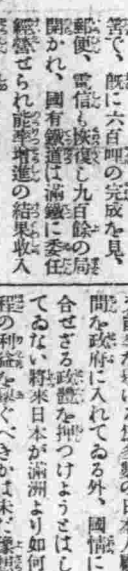 筈で、既に六百哩の完成を見、
郵便、電信も恢復し九百餘の局
開かれ、國有鐵道は滿鐵に委任
經營せられ能率增進の結果收入
問を政府に入れてゐる外、國情に
合せざる政體を押つけようとはし
てゐない將來日本が滿洲より如何
程の利益を稼ぐべきかは未だ